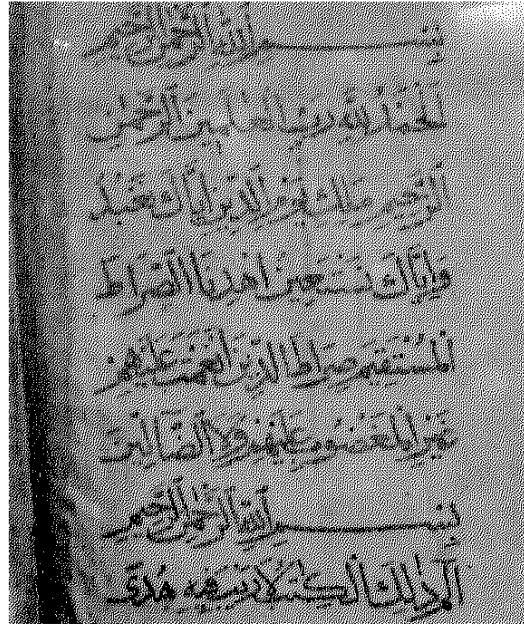 بسم الله الرحمن الرحيم
الحمد لله رب العالمين الرحمن
الرحيم ملك يوم الدين إياك نعبد
وإياك نستعين اهدنا الصراط
المستقيم صراط الذين أنعمت عليهم
غير المغضوب عليهم ولا الضالين
بسم الله الرحمن الرحيم
الم ذلك الكتب لا ريب فيه هدى